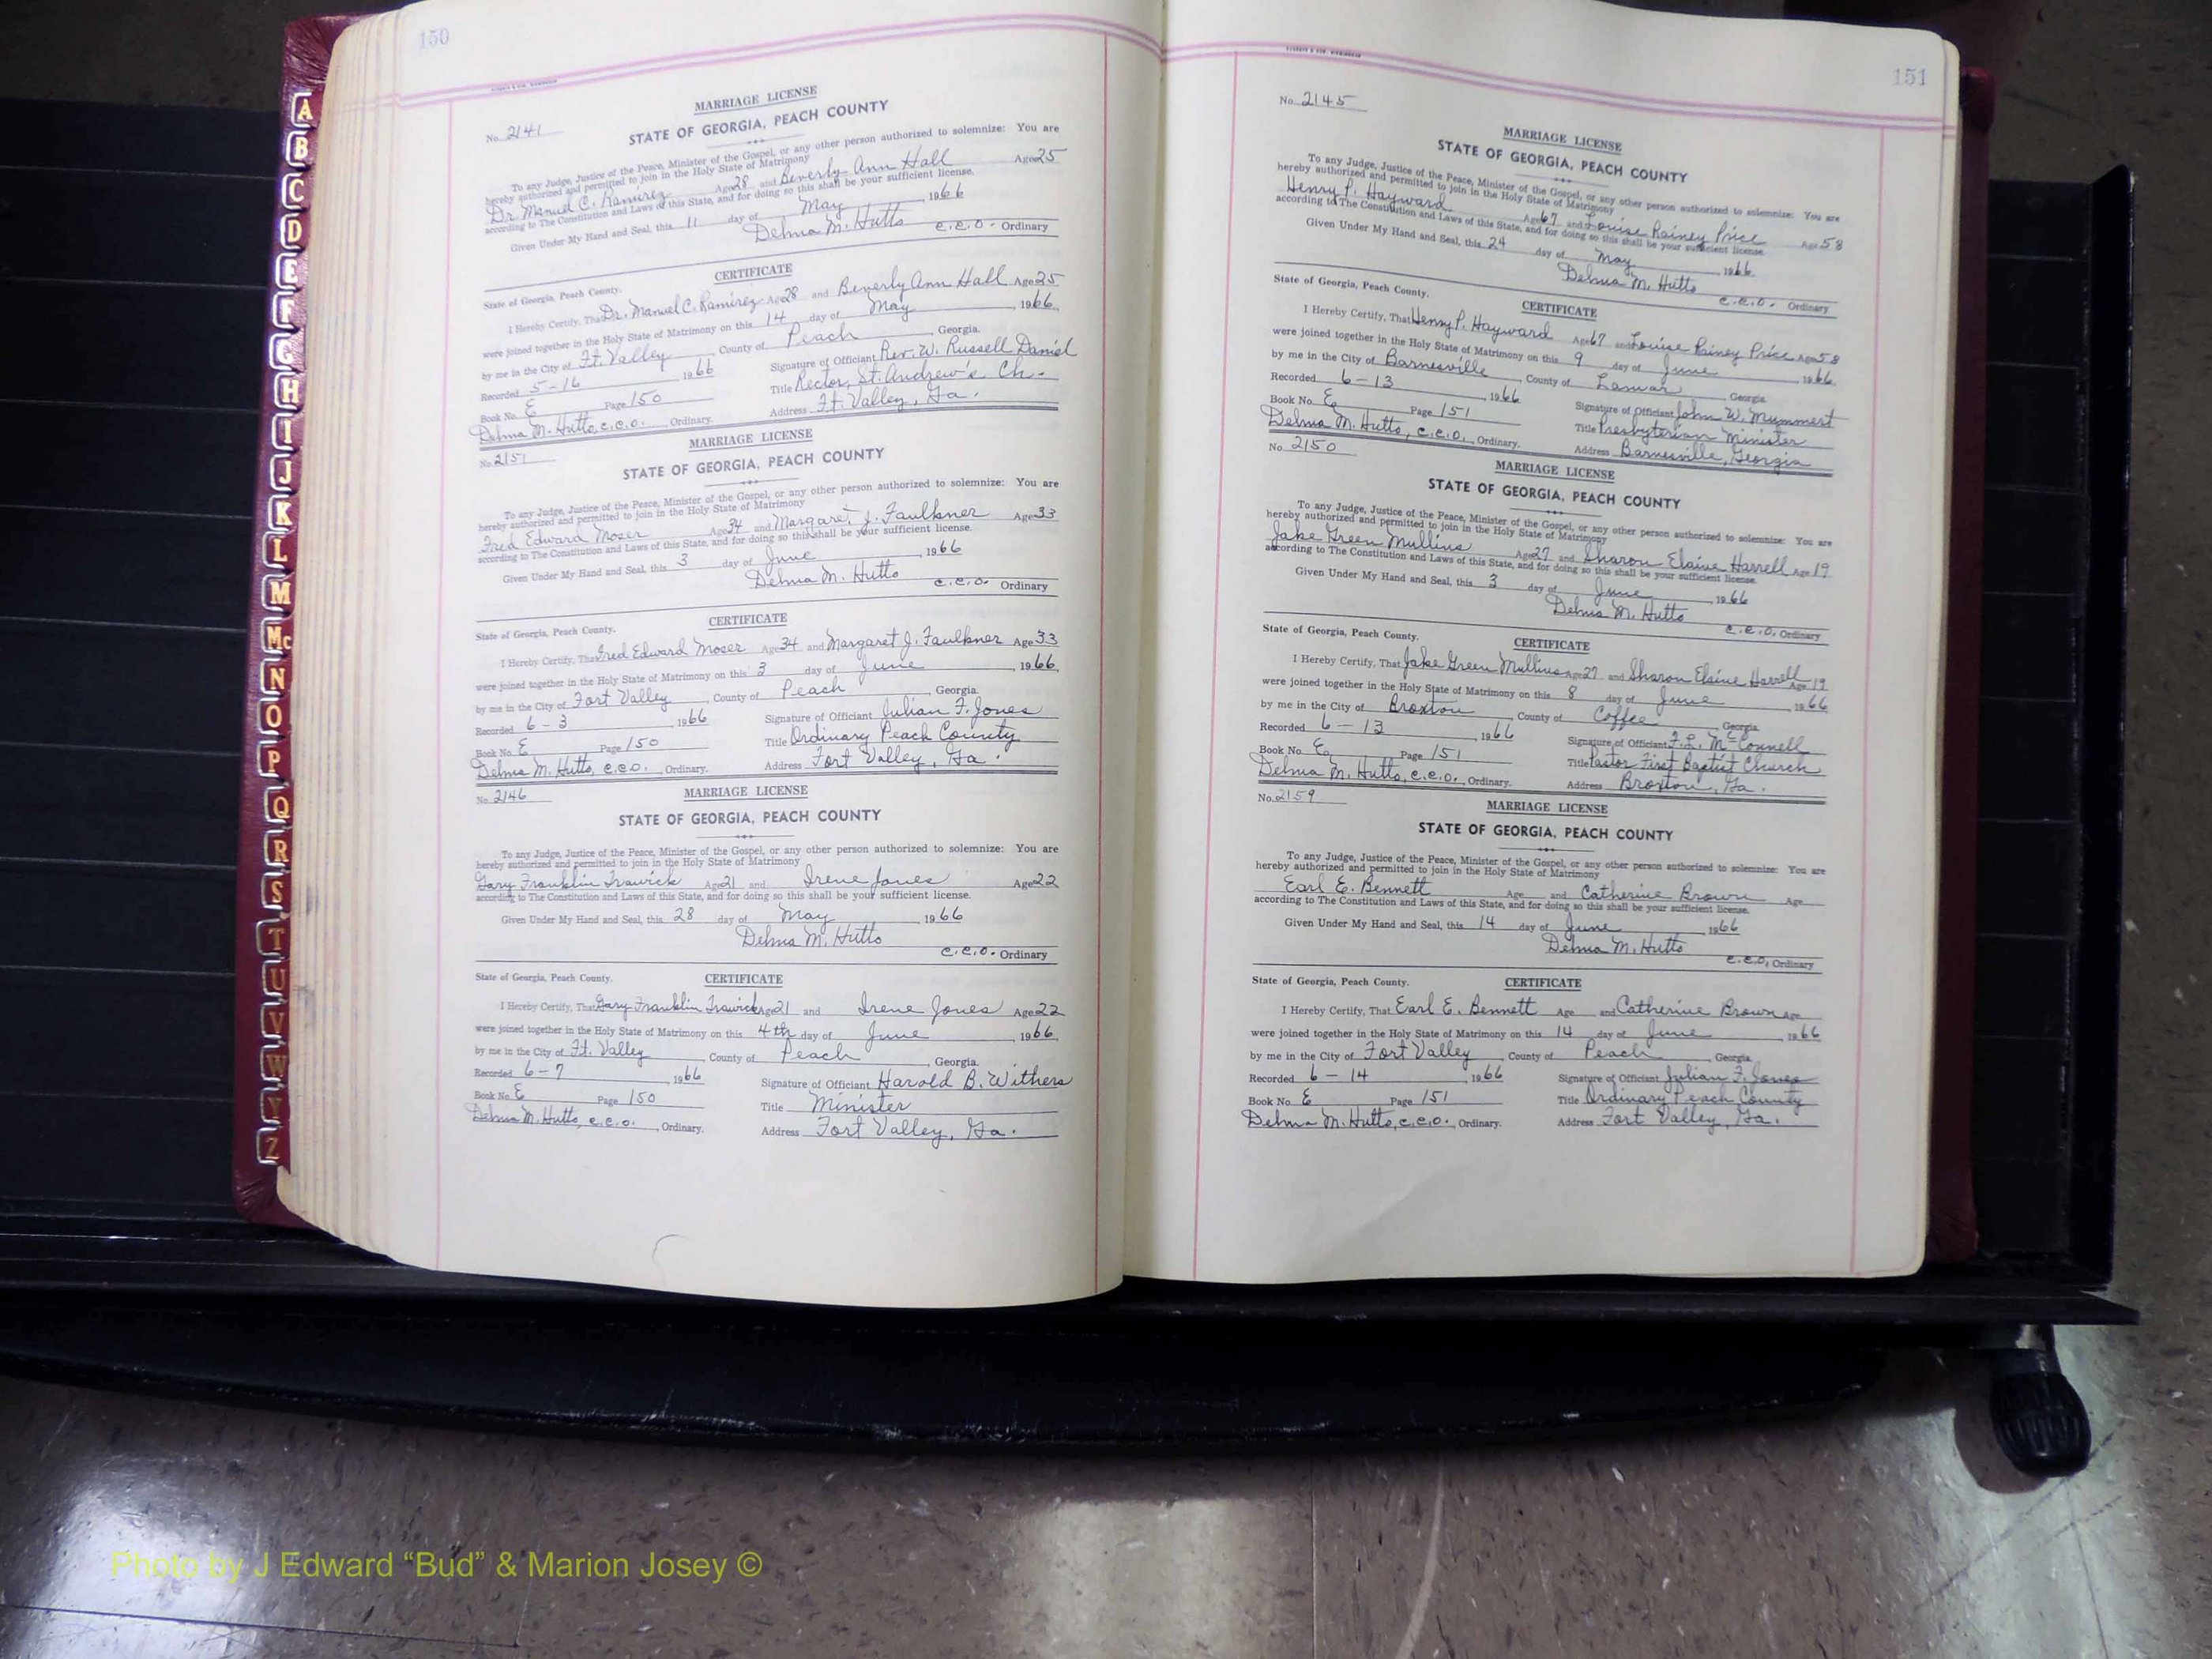 150
MARRIAGE LICENSE
No. 2141
STATE OF GEORGIA, PEACH COUNTY
To any Judge, Justice of the Peace, Minister of the Gospel, or any other person authorized to solemnize: You are
hereby authorized and permitted to join in the Holy State of Matrimony
Dr. Manuel C. Ramirez Age 28 and Beverly Ann Hall Age 25
according to The Constitution and Laws of this State, and for doing so this shall be your sufficient license.
Given Under My Hand and Seal, this 11 day of May, 1966
Delma M. Hutto
C.C.O. Ordinary
CERTIFICATE
State of Georgia, Peach County.
I Hereby Certify, That Dr. Manuel C. Ramirez Age 28 and Beverly Ann Hall Age 25
were joined together in the Holy State of Matrimony on this 14 day of May, 1966.
by me in the City of Ft. Valley, County of Peach, Georgia.
Recorded 5-16 1966
Signature of Officiant Rev. W. Russell Daniel
Book No. E Page 150
Title Rector, St. Andrew's Ch.
Delma M. Hutto, C.C.O., Ordinary.
Address Ft. Valley, Ga.
MARRIAGE LICENSE
No. 2151
STATE OF GEORGIA, PEACH COUNTY
To any Judge, Justice of the Peace, Minister of the Gospel, or any other person authorized to solemnize: You are
hereby authorized and permitted to join in the Holy State of Matrimony
Fred Edward Moser Age 34 and Margaret J. Faulkner Age 33
according to The Constitution and Laws of this State, and for doing so this shall be your sufficient license.
Given Under My Hand and Seal, this 3 day of June, 1966
Delma M. Hutto
C.C.O. Ordinary
CERTIFICATE
State of Georgia, Peach County.
I Hereby Certify, That Fred Edward Moser Age 34 and Margaret J. Faulkner Age 33
were joined together in the Holy State of Matrimony on this 3 day of June, 1966.
by me in the City of Fort Valley, County of Peach, Georgia.
Recorded 6-3, 1966
Signature of Officiant Julian F. Jones
Book No. E Page 150
Title Ordinary Peach County
Delma M. Hutto, C.C.O., Ordinary.
Address Fort Valley, Ga.
No. 2146
MARRIAGE LICENSE
STATE OF GEORGIA, PEACH COUNTY
To any Judge, Justice of the Peace, Minister of the Gospel, or any other person authorized to solemnize: You are
hereby authorized and permitted to join in the Holy State of Matrimony
Gary Franklin Trawick Age 21 and Irene Jones Age 22
according to The Constitution and Laws of this State, and for doing so this shall be your sufficient license.
Given Under My Hand and Seal, this 28 day of May, 1966
Delma M. Hutto
C.C.O. Ordinary
State of Georgia, Peach County. CERTIFICATE
I Hereby Certify, That Gary Franklin Trawick Age 21 and Irene Jones Age 22
were joined together in the Holy State of Matrimony on this 4th day of June, 1966.
by me in the City of Ft. Valley, County of Peach, Georgia.
Recorded 6-7, 1966
Signature of Officiant Harold B. Withers
Book No. E Page 150
Title Minister
Delma M. Hutto, C.C.O., Ordinary.
Address Fort Valley, Ga.
151
No. 2145
MARRIAGE LICENSE
STATE OF GEORGIA, PEACH COUNTY
To any Judge, Justice of the Peace, Minister of the Gospel, or any other person authorized to solemnize: You are
hereby authorized and permitted to join in the Holy State of Matrimony
Henry P. Hayward Age 67 and Louise Rainey Price Age 58
according to The Constitution and Laws of this State, and for doing so this shall be your sufficient license.
Given Under My Hand and Seal, this 24 day of May, 1966
Delma M. Hutto
C.C.O. Ordinary
State of Georgia, Peach County. CERTIFICATE
I Hereby Certify, That Henry P. Hayward Age 67 and Louise Rainey Price Age 58
were joined together in the Holy State of Matrimony on this 9 day of June, 1966.
by me in the City of Barnesville, County of Lamar, Georgia
Recorded 6-13, 1966
Signature of Officiant John W. Mummert
Book No. E Page 151
Title Presbyterian Minister
Delma M. Hutto, C.C.O., Ordinary.
Address Barnesville, Georgia
No. 2150
MARRIAGE LICENSE
STATE OF GEORGIA, PEACH COUNTY
To any Judge, Justice of the Peace, Minister of the Gospel, or any other person authorized to solemnize: You are
hereby authorized and permitted to join in the Holy State of Matrimony
Jake Green Mullins Age 27 and Sharon Elaine Harrell Age 19
according to The Constitution and Laws of this State, and for doing so this shall be your sufficient license.
Given Under My Hand and Seal, this 3 day of June, 1966
Delma M. Hutto
C.C.O. Ordinary
State of Georgia, Peach County. CERTIFICATE
I Hereby Certify, That Jake Green Mullins Age 27 and Sharon Elaine Harrell Age 19
were joined together in the Holy State of Matrimony on this 8 day of June, 1966
by me in the City of Broxton, County of Coffee, Georgia
Recorded 6-13, 1966
Signature of Officiant F. L. McConnell
Book No. E Page 151
Title Pastor First Baptist Church
Delma M. Hutto, C.C.O., Ordinary.
Address Broxton, Ga.
No. 2159
MARRIAGE LICENSE
STATE OF GEORGIA, PEACH COUNTY
To any Judge, Justice of the Peace, Minister of the Gospel, or any other person authorized to solemnize: You are
hereby authorized and permitted to join in the Holy State of Matrimony
Earl E. Bennett Age and Catherine Brown Age
according to The Constitution and Laws of this State, and for doing so this shall be your sufficient license.
Given Under My Hand and Seal, this 14 day of June, 1966
Delma M. Hutto
C.C.O. Ordinary
State of Georgia, Peach County. CERTIFICATE
I Hereby Certify, That Earl E. Bennett Age and Catherine Brown Age
were joined together in the Holy State of Matrimony on this 14 day of June, 1966
by me in the City of Fort Valley, County of Peach, Georgia
Recorded 6-14, 1966
Signature of Officiant Julian F. Jones
Book No. E Page 151
Title Ordinary Peach County
Delma M. Hutto, C.C.O., Ordinary.
Address Fort Valley, Ga.
A
B
C
D
E
F
G
H
I
J
K
L
M
Mc
N
O
P
Q
R
S
T
U
V
W
Y
Z
Photo by J Edward “Bud” & Marion Josey ©